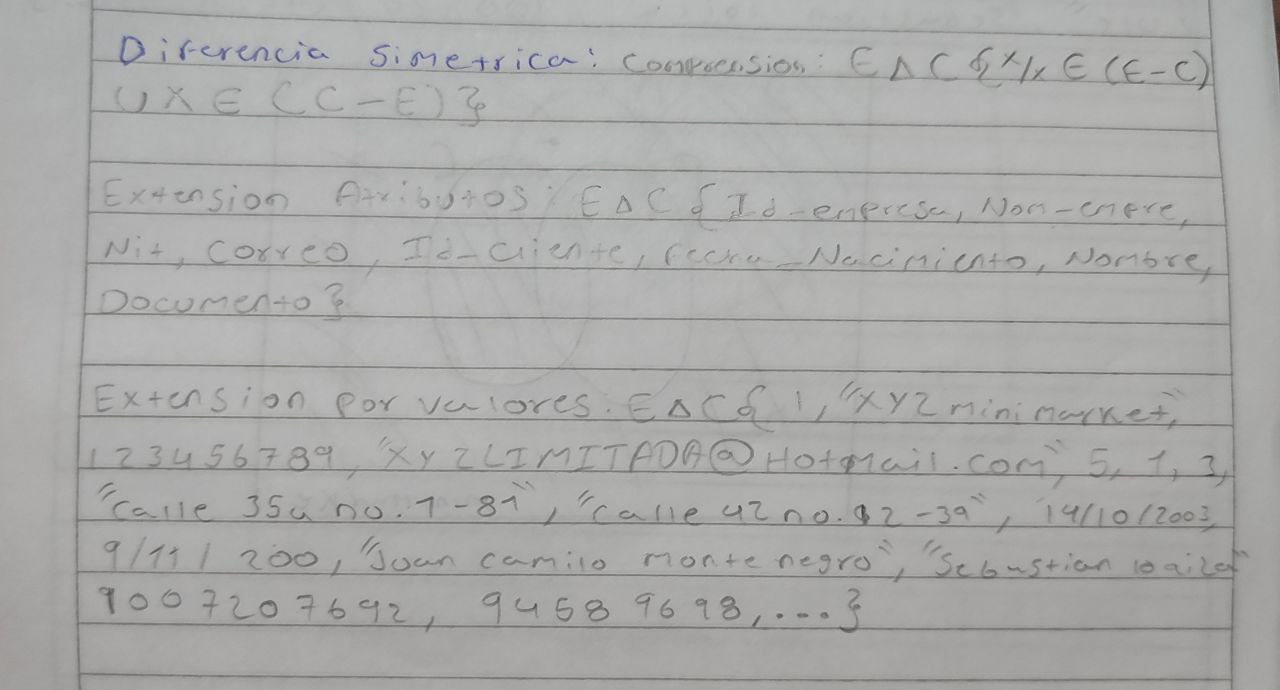 Diferencia Simetrica: Comprension: E Δ C {x/x ∈ (E-C)
U X ∈ (C-E)}
Extension Atributos: E Δ C { Id-empresa, Nom-empre,
Nit, Correo, Id-cliente, fecha_Nacimiento, Nombre,
Documento}
Extension por valores. E Δ C { 1, "XYZ minimarket",
123456789, "XYZLIMITADA@Hotmail.com", 5, 1, 3,
"Calle 35a no. 1-81", "Calle 42 no. 12-39", 14/10/2003,
9/11/200, "Juan camilo montenegro", "Sebastian loaiza"
1007207692, 94589698, ...}